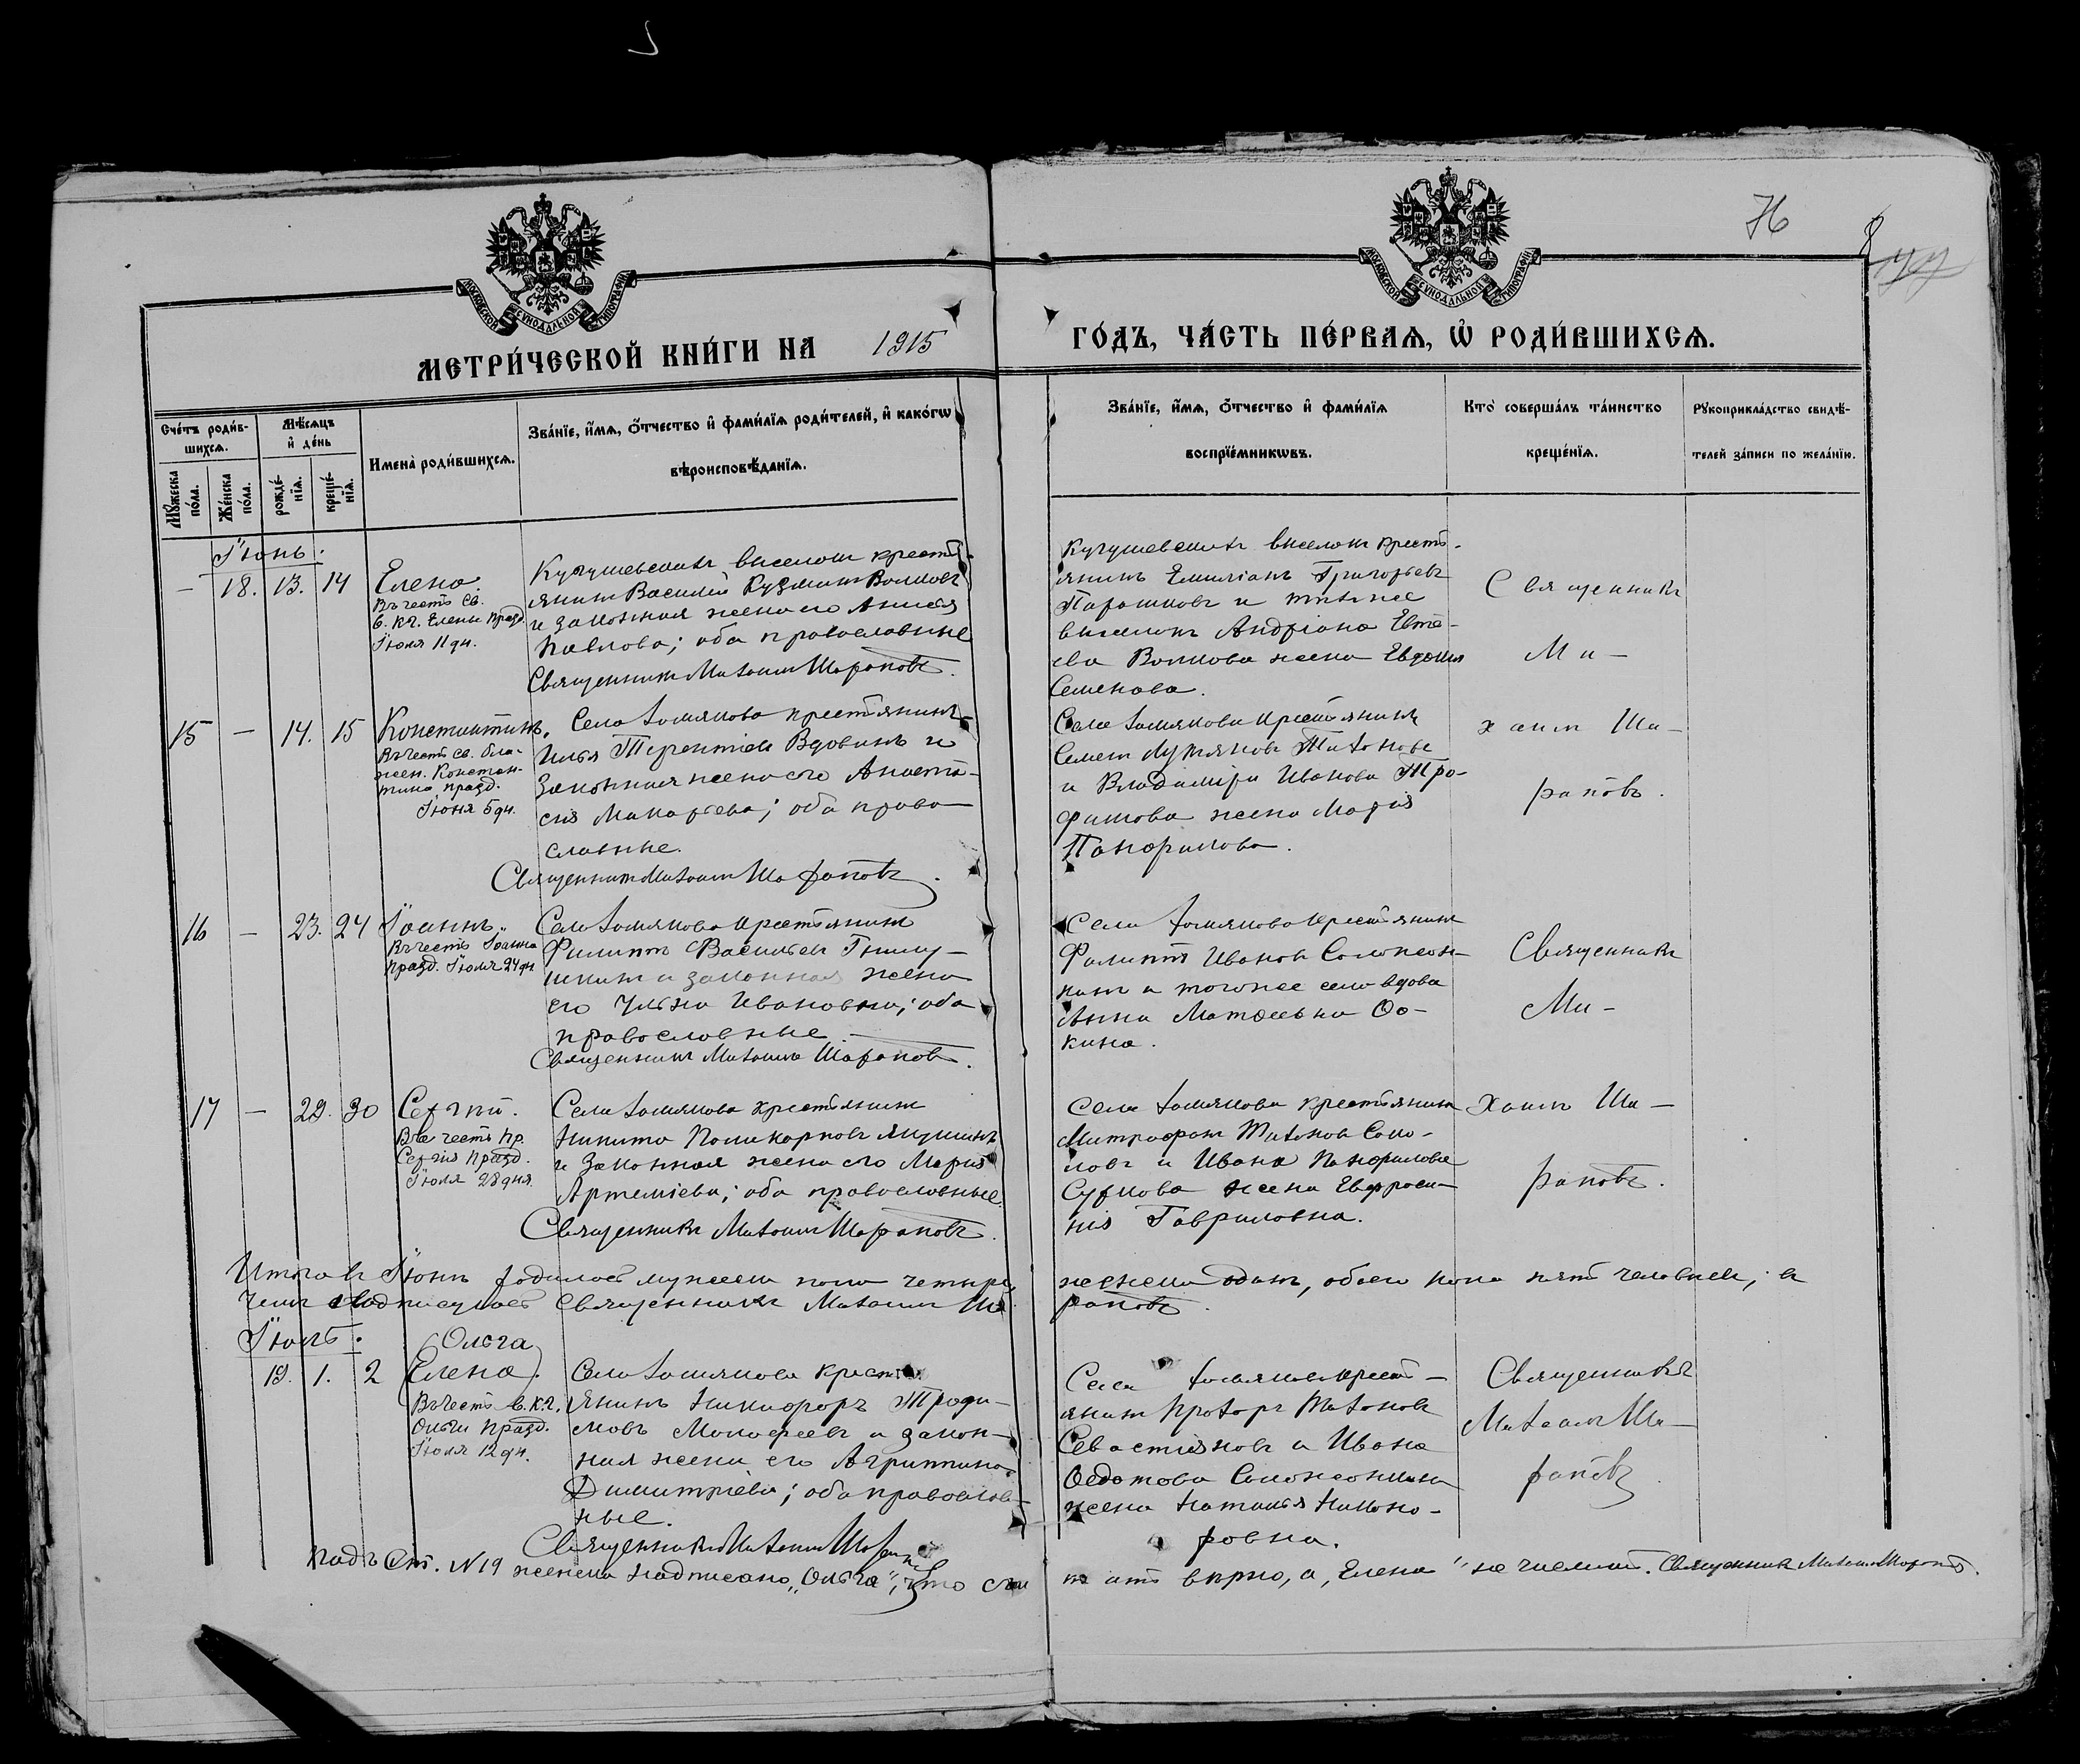 76
МОСКОВСКОЙ СѴНОДАЛЬНОЙ ТИПОГРАФІИ
МОСКОВСКОЙ СѴНОДАЛЬНОЙ ТИПОГРАФІИ
МЕТРИ́ЧЕСКОЙ КНИ́ГИ НА 1915 ГО́ДЪ, ЧА́СТЬ ПЕ́РВАѦ, Ѡ҆ РОДИ́ВШИХСѦ.
Сче́тъ роди́в-
шихсѧ.
Мꙋ́жеска по́ла.
Же́нска по́ла.
Мѣ́сѧцъ и҆ де́нь
рожде́-
нїѧ.
креще́-
нїѧ.
Имена̀ роди́вшихсѧ.
Зва́нїе, и҆́мѧ, ѻ҆́тчество и҆ фами́лїѧ роди́телей, и҆ како́гѡ
вѣроисповѣ́данїѧ.
Зва́нїе, и҆́мѧ, ѻ҆́тчество и҆ фами́лїѧ
воспрїе́мникѡвъ.
Кто̀ соверша́лъ та́инство
креще́нїѧ.
Рꙋкоприкла́дство свидѣ́-
телей за́писи по жела́нїю.
Іюнь.
— 18. 13. 14 Елена.
Въ честь св.
б. кг. Елены празд.
Іюля 11 дн.
выселокъ крестъ-
янинъ Василій Кузминъ Волковъ
и законная жена его Анисія
Павлова; оба православные
Священникъ Михаилъ Шараповъ.
выселокъ кресть-
янинъ Емиліанъ Григорьевъ
и тѣхже
выселокъ Андріана Евте-
ева Волкова жена Евдокія
Семенова.
Священникъ
Ми-
15 — 14. 15 Константинъ.
Въ честь св. бла-
жен. Констан-
тина празд.
Іюня 5 дн.
Села крестьянинъ
Илья Терентіевъ Вдовинъ и
законная жена его Анаста-
сія Макарьева; оба право-
славные.
Священникъ Михаилъ Шараповъ.
Села крестьянинъ
Семенъ Тихоновъ
и Владиміра Иванова Тро-
фимова жена Марія
Панфилова.
хаилъ Ша-
раповъ.
16 — 23. 24 Іоаннъ.
Въ честь Іоанна
празд. Іюня 24 дн
Село крестьянинъ
Филиппъ Васильевъ
и законная жена
его Ульяна Ивановна; оба
православные.
Священникъ Михаилъ Шараповъ.
Села крестьянинъ
Филиппъ Ивановъ
и тогоже села вдова
Анна Матѳеевна Ѳо-
кина.
Священникъ
Ми-
17 — 29. 30 Сергій.
Въ честь Пр.
Сергія Празд.
Іюня 28 дня.
Села крестьянинъ
Никита Поликарповъ
и законная жена его Марія
Артеміева; оба православные.
Священникъ Михаилъ Шараповъ.
Села крестьянинъ
Митрофанъ Тихоновъ Соко-
ловъ и Ивана Панфилова
Суркова жена Евфроси-
нія Гавриловна.
хаилъ Ша-
раповъ.
Итого въ Іюнѣ родилось мужеска пола четыре, женска одинъ, обоего пола пять человѣкъ; въ
чемъ и подписуюсь Священникъ Михаилъ Шараповъ.
Іюль.
Ольга
19. 1. 2 (Елена).
Въ честь б. кг.
Ольги Празд.
Іюля 12 дн.
Села кресть-
янинъ Никифоръ Трофи-
мовъ и закон-
ная жена его Агриппина
Димитріева; оба православ-
ные.
Священникъ Михаилъ Шараповъ
Села крест-
янинъ Прохоръ Тихоновъ
Севастьяновъ и Ивана
Ѳедотова
жена Наталья Никано-
ровна.
Священникъ
Михаилъ Ша-
раповъ
Надъ Ст. № 19 женска надписано „Ольга“, что считать вѣрно, а „Елена“ не числить. Священникъ Михаилъ Шараповъ.